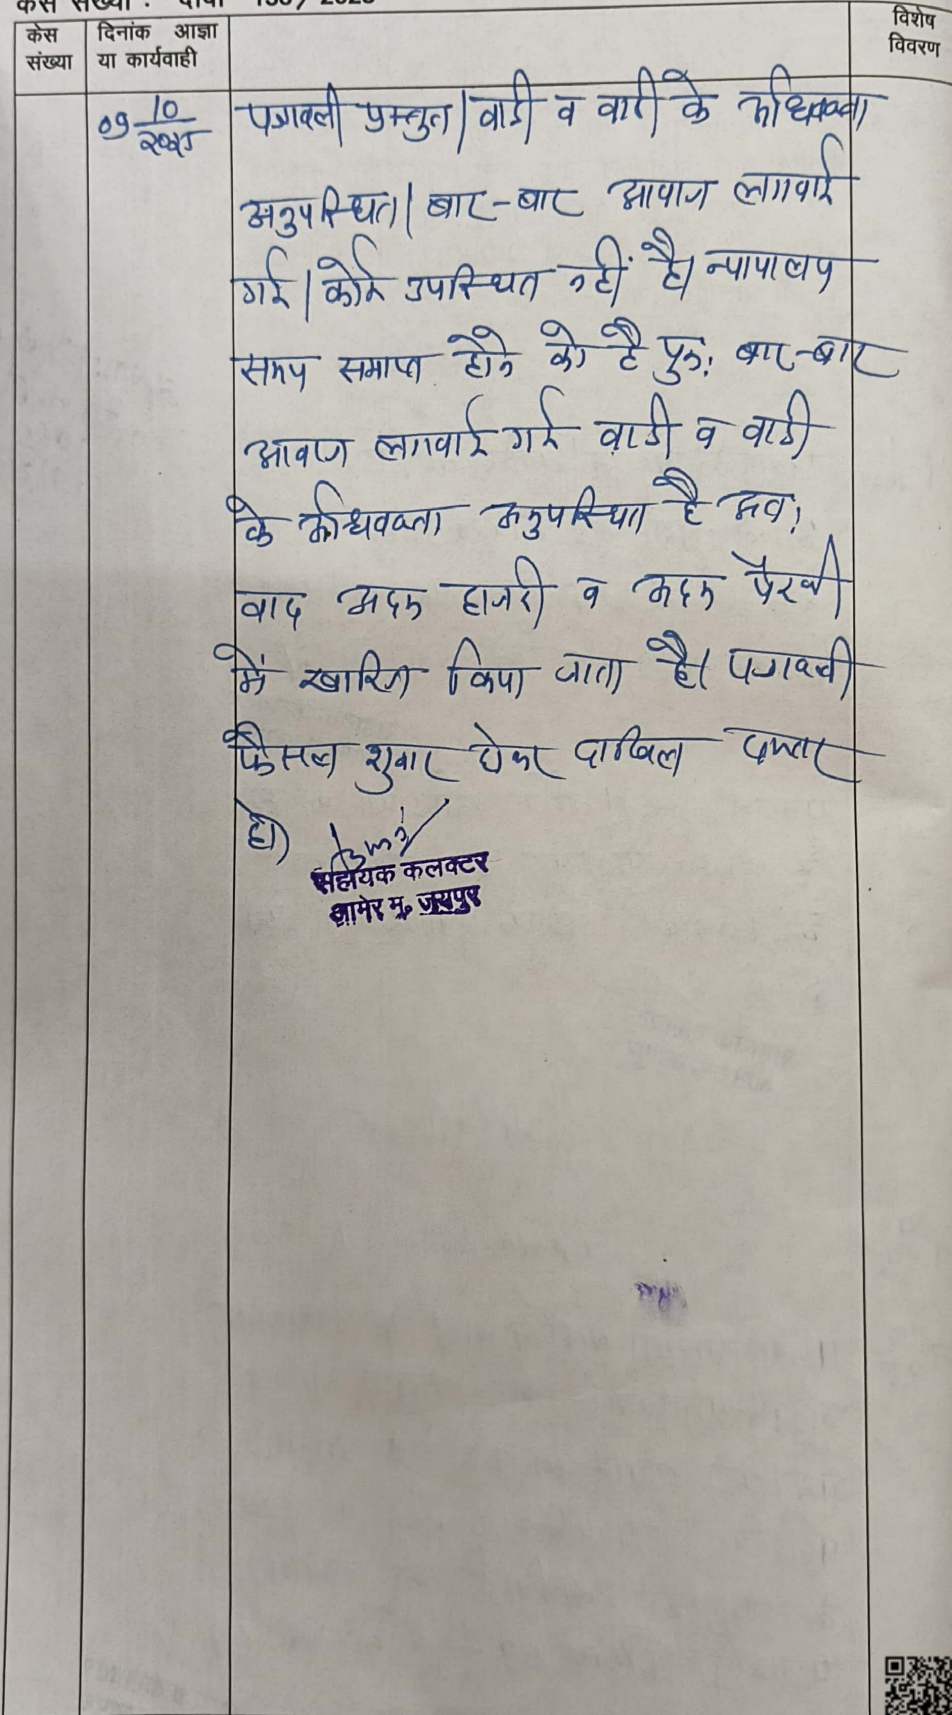 केस संख्या : दावा
केस संख्या
दिनांक आज्ञा या कार्यवाही
विशेष विवरण
09 10/2025
पत्रावली प्रस्तुत। वादी व वादी के अधिवक्ता
अनुपस्थित। बार-बार आवाज लगवाई
गई। कोई उपस्थित नहीं है। न्यायालय
समय समाप्त होने को है पुन: बार-बार
आवाज लगवाई गई वादी व वादी
के अधिवक्ता अनुपस्थित है अत:
वाद अदम हाजरी व अदम पैरवी
में खारिज किया जाता है। पत्रावली
फैसल शुमार होकर दाखिल दफ्तर
हो।
सहायक कलक्टर
आमेर मु. जयपुर